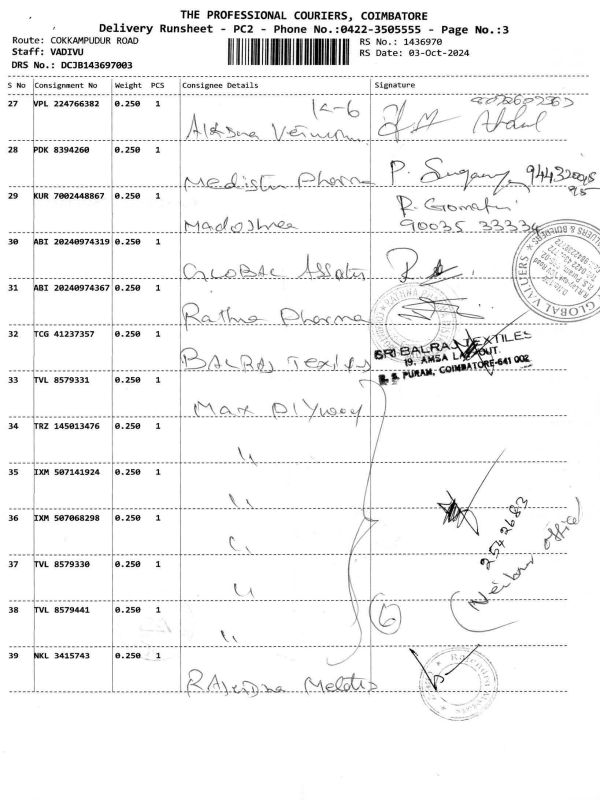 THE PROFESSIONAL COURIERS, COIMBATORE
Delivery Runsheet - PC2 - Phone No.:0422-3505555 - Page No.:3
Route: COKKAMPUDUR ROAD
RS No.: 1436970
Staff: VADIVU
RS Date: 03-Oct-2024
DRS No.: DCJB143697003
S No Consignment No Weight PCS Consignee Details Signature
27 VPL 224766382 0.250 1
K-6
Abdul
28 PDK 8394260 0.250 1
Pharma P.
29 KUR 7002448867 0.250 1
R. Gomathi
90035 33334
30 ABI 20240974319 0.250 1
GLOBAL
GLOBAL VALUERS
31 ABI 20240974367 0.250 1
Rathna Pharma
32 TCG 41237357 0.250 1
BALRAJ Textiles
SRI BALRAJ TEXTILES
19, AMSA LAYOUT,
R. S. PURAM, COIMBATORE-641 002
33 TVL 8579331 0.250 1
Max Plywood
34 TRZ 145013476 0.250 1
"
35 IXM 507141924 0.250 1
"
36 IXM 507068298 0.250 1
"
2542683
office
37 TVL 8579330 0.250 1
"
38 TVL 8579441 0.250 1
"
6
39 NKL 3415743 0.250 1
Rajendra Metals